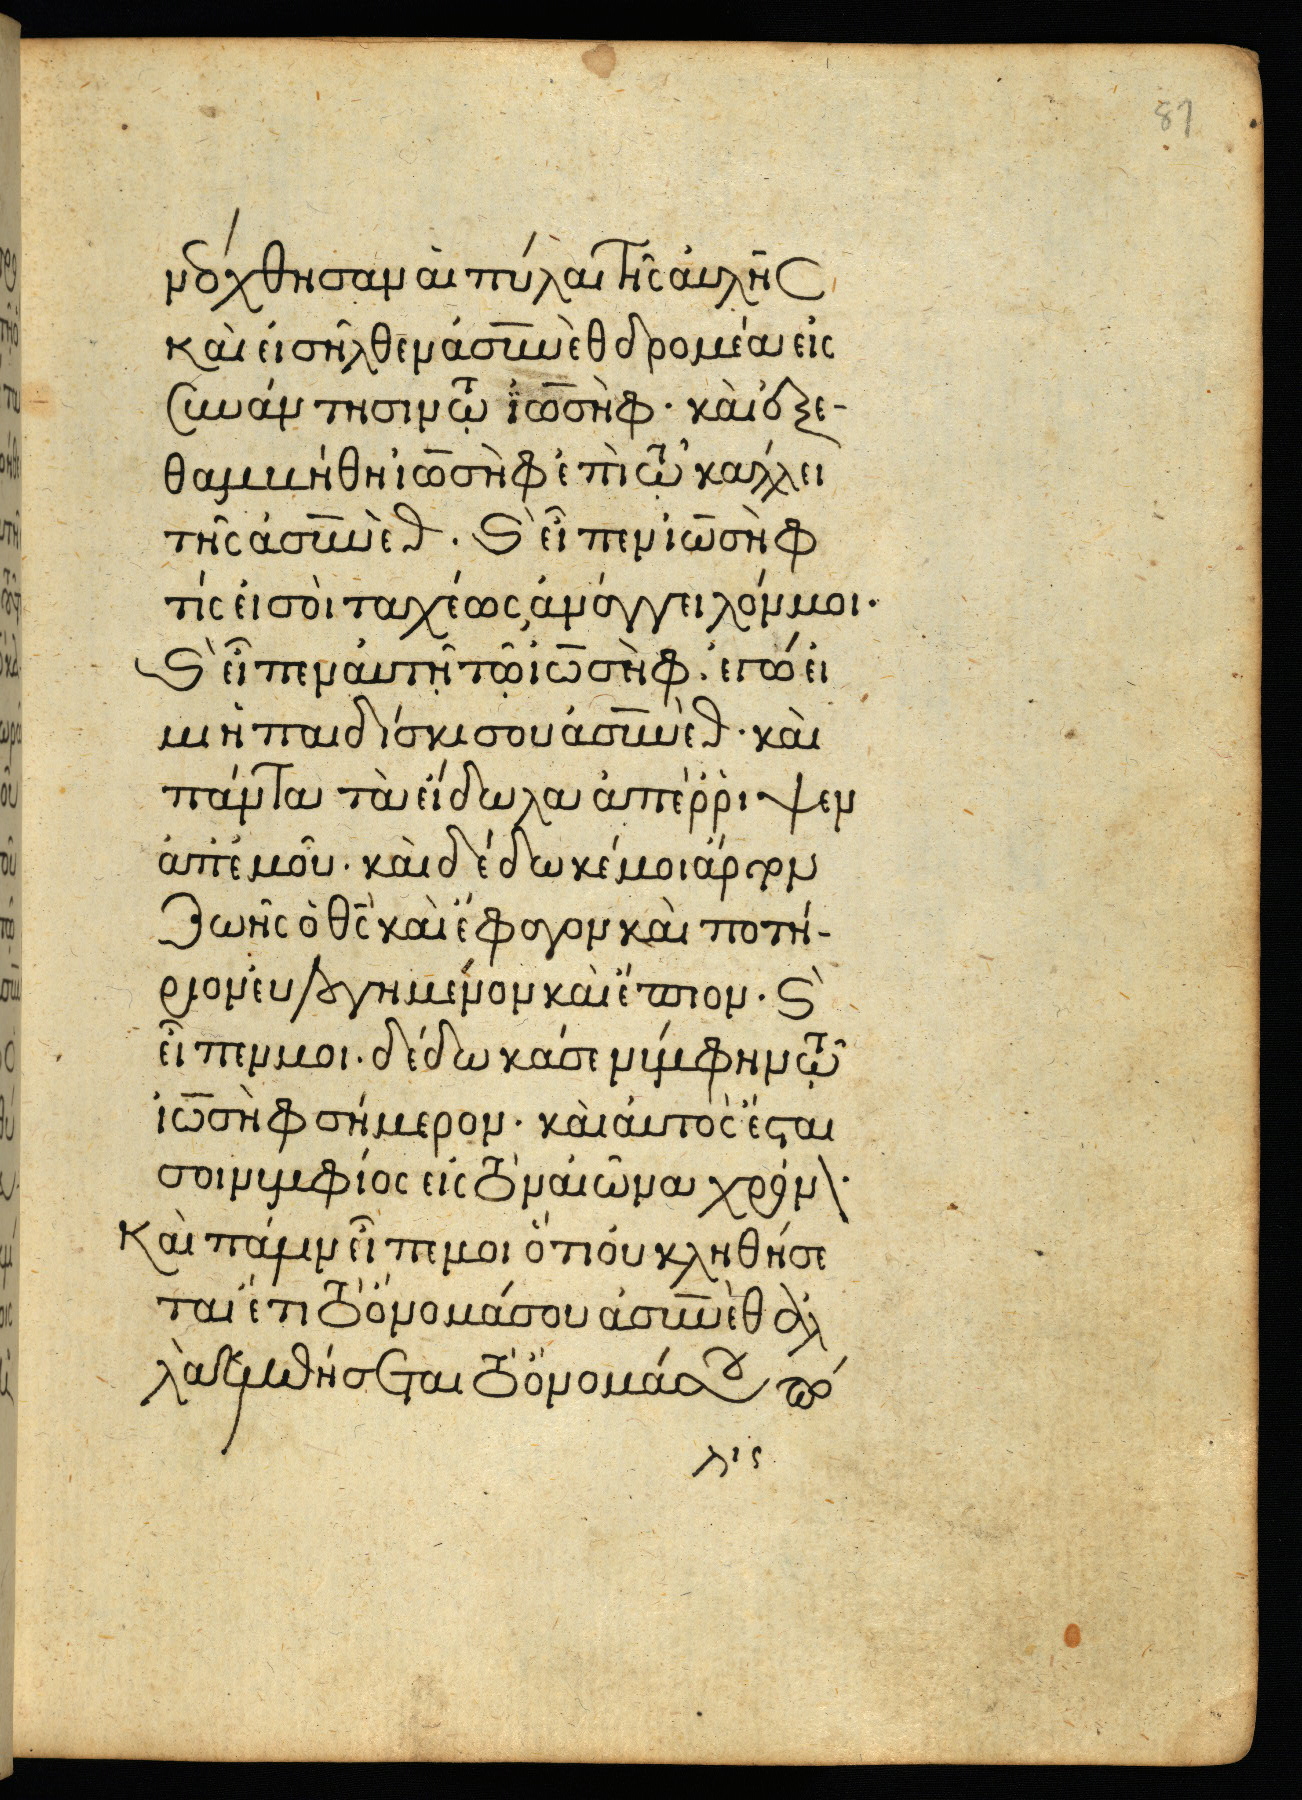 87
νόχθησαν αἱ πύλαι τῆς αὐλῆς
καὶ εἰσῆλθεν ἀσυνὲθ δρομέα εἰς
συνάντησιν τῷ ἰωσὴφ · καὶ ἐξε-
θαμβήθη ἰωσὴφ ἐπὶ τῷ κάλλει
τῆς ἀσυνὲθ . καὶ εἶπεν ἰωσὴφ
τίς εἶ σὺ ταχέως, ἀνάγγειλόν μοι ·
καὶ εἶπεν αὐτὴ τῷ ἰωσὴφ . ἐγώ εἰ
μι ἡ παιδίσκι σου ἀσυνὲθ · καὶ
πάντα τὰ εἴδωλα ἀπέῤῥιψεν
ἀπ' ἐμοῦ · καὶ δέδωκέ μοι ἄρτον
ζωῆς ὁ θς καὶ ἔφαγον καὶ ποτή-
ριον εὐλογημένον καὶ ἔπιον · καὶ
εἶπεν μοι · δέδωκά σε νύμφην τῷ
ἰωσὴφ σήμερον · καὶ αὐτὸς ἔσται
σοι νυμφίος εἰς τὸν αἰῶνα χρόν\ ·
καὶ πάλιν εἶπε μοι ὅτι οὐ κληθήσε
ται ἔτι τὸ ὄνομά σου ἀσυνὲθ ἀλ
λὰ κληθήσεται τὸ ὄνομά σου πό
λις